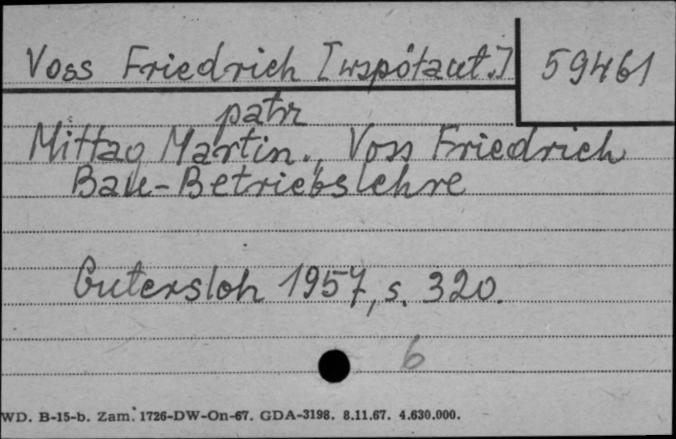 Voss Friedrich [współaut.] 59461
patr
Mittag Martin., Voss Friedrich
Bau-Betriebslehre
Gutersloh 1957, s. 320.
6
WD. B-15-b. Zam. 1726-DW-On-67. GDA-3198. 8.11.67. 4.630.000.